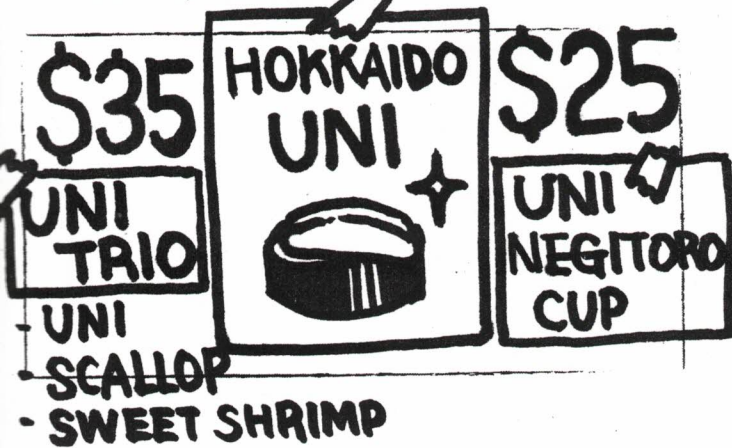 $35
UNI
TRIO
- UNI
- SCALLOP
- SWEET SHRIMP
HOKKAIDO
UNI
$25
UNI
NEGITORO
CUP